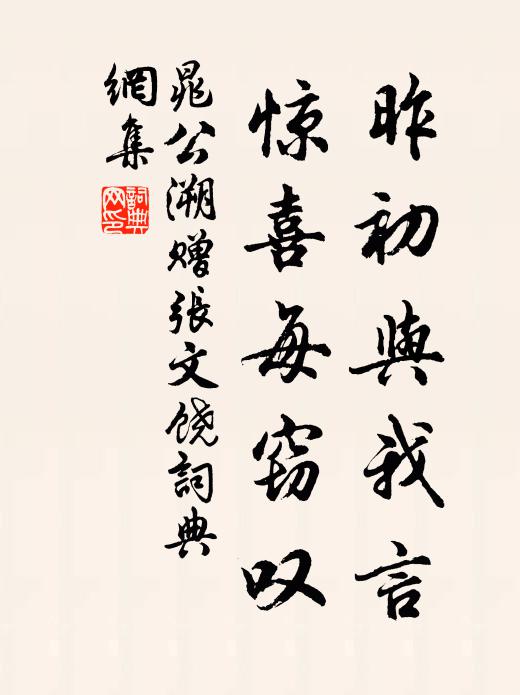 昨初與我言
惊喜每窃叹
晁公溯赠張文饶詞典
網集
詞典网印